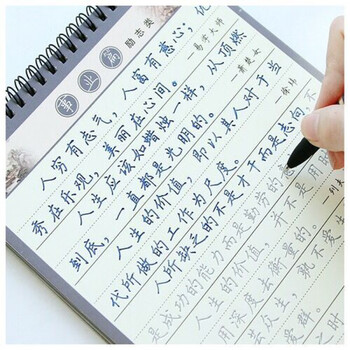 励志类
事业
人穷有志气，人富有意心；优
秀在乐观，美丽在心间。
—易学大师
人生应该如蜡烛一样，从顶燃
到底，一直都是光明的。
—萧楚女
人生的价值，即以其人对于当
代所做的工作为尺度。
—徐特
人所缺乏的不是才干而是志向，不
是成功的能力而是勤劳的意
人生的价值，并不是用时
用深度去衡量的。
—列夫
去众生，就不爱生
爱群。
之时